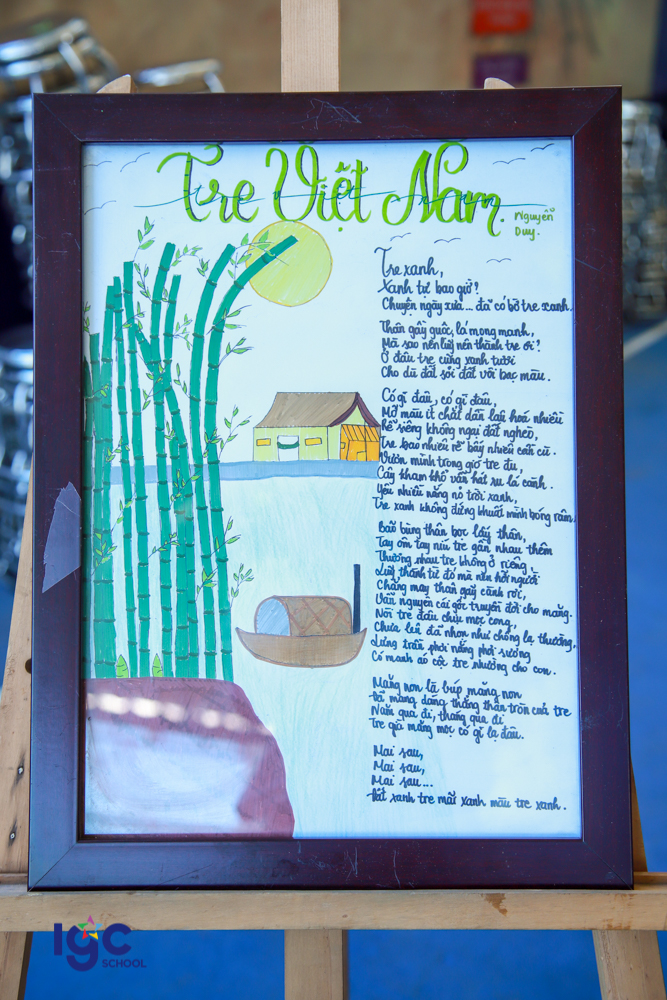 Tre Việt Nam.
Nguyễn
Duy.
Tre xanh,
Xanh tự bao giờ?
Chuyện ngày xưa... đã có bờ tre xanh.
Thân gầy guộc, lá mong manh,
Mà sao nên lũy nên thành tre ơi?
Ở đâu tre cũng xanh tươi
Cho dù đất sỏi đất vôi bạc màu.
Có gì đâu, có gì đâu,
Mỡ màu ít chất dồn lâu hoá nhiều
Rễ siêng không ngại đất nghèo,
Tre bao nhiêu rễ bấy nhiêu cần cù.
Vươn mình trong gió tre đu,
Cây kham khổ vẫn hát ru lá cành.
Yêu nhiều nắng nỏ trời xanh,
Tre xanh không đứng khuất mình bóng râm.
Bão bùng thân bọc lấy thân,
Tay ôm tay níu tre gần nhau thêm
Thương nhau tre không ở riêng
Luỹ thành từ đó mà nên hỡi người
Chẳng may thân gãy cành rơi,
Vẫn nguyên cái gốc truyền đời cho măng.
Nòi tre đâu chịu mọc cong,
Chưa lên đã nhọn như chông lạ thường,
Lưng trần phơi nắng phơi sương
Có manh áo cộc tre nhường cho con.
Măng non là búp măng non
Đã mang dáng thẳng thân tròn của tre
Năm qua đi, tháng qua đi
Tre già măng mọc có gì lạ đâu.
Mai sau,
Mai sau,
Mai sau...
Đất xanh tre mãi xanh màu tre xanh.
IGC
SCHOOL